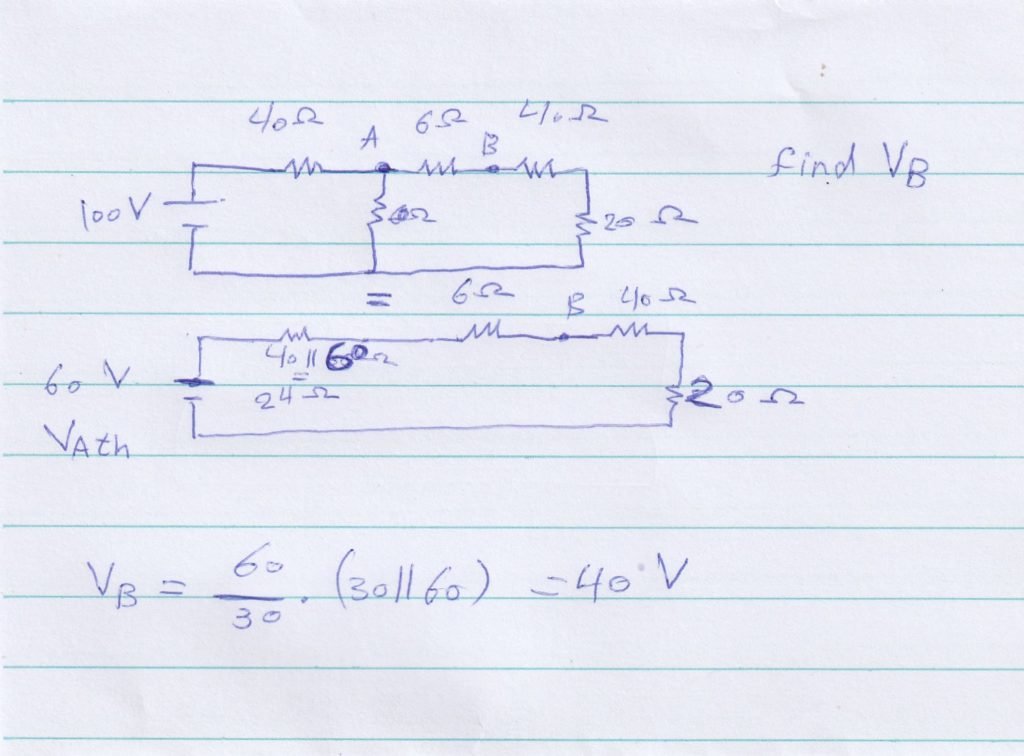 40Ω A 6Ω B 40Ω
find V_B
100V 20 Ω
=
6Ω B 40Ω
40 || 60Ω
=
24Ω
60 V 20 Ω
V_Ath
V_B = 60/30 . (30||60) = 40 V